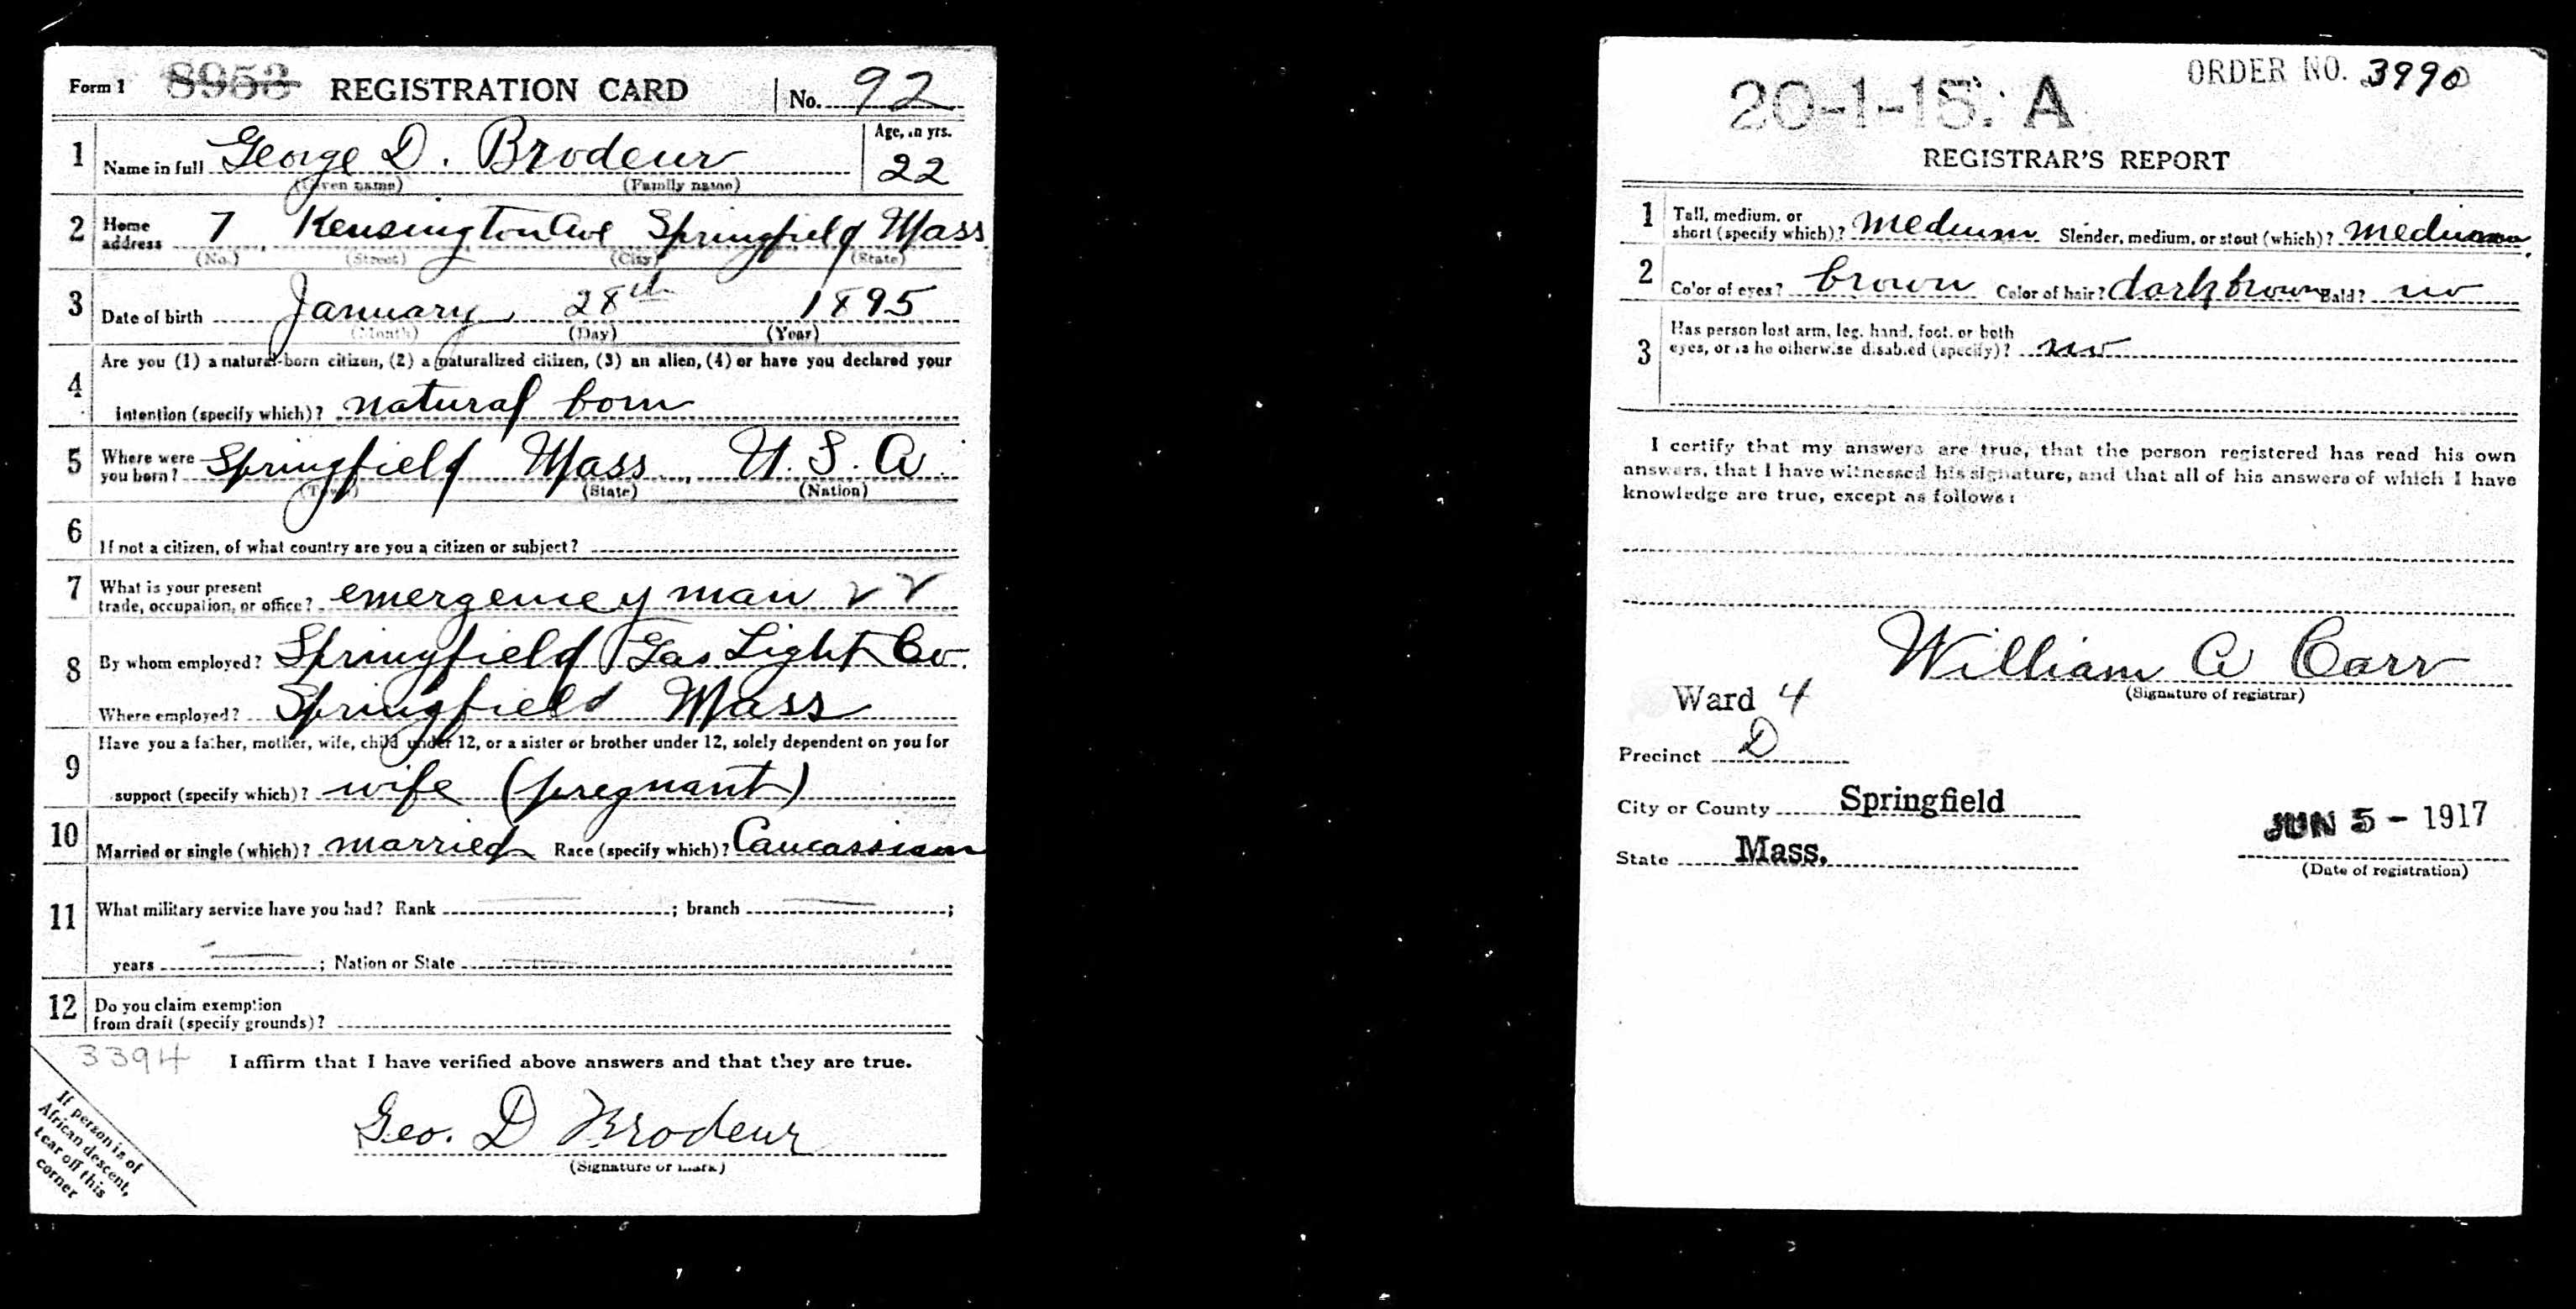 Form 1 8953 REGISTRATION CARD No. 92
1 Name in full George D. Brodeur Age, in yrs. 22
(Given name) (Family name)
2 Home address 7 Kensington Ave Springfield Mass
(No.) (Street) (City) (State)
3 Date of birth January 28th 1895
(Month) (Day) (Year)
4 Are you (1) a natural-born citizen, (2) a naturalized citizen, (3) an alien, (4) or have you declared your
intention (specify which)? natural born
5 Where were you born? Springfield Mass, U.S.A.
(Town) (State) (Nation)
6 If not a citizen, of what country are you a citizen or subject?
7 What is your present trade, occupation, or office? emergency man
8 By whom employed? Springfield Gas Light Co.
Where employed? Springfield Mass
9 Have you a father, mother, wife, child under 12, or a sister or brother under 12, solely dependent on you for
support (specify which)? wife (pregnant)
10 Married or single (which)? married Race (specify which)? Caucassian
11 What military service have you had? Rank ; branch ;
years ; Nation or State
12 Do you claim exemption
from draft (specify grounds)?
3394 I affirm that I have verified above answers and that they are true.
Geo. D Brodeur
(Signature or mark)
If person is of
African descent,
tear off this
corner
ORDER NO. 3990
20-1-15. A
REGISTRAR'S REPORT
1 Tall, medium, or
short (specify which)? medium Slender, medium, or stout (which)? medium
2 Color of eyes? brown Color of hair? dark brown Bald? no
3 Has person lost arm, leg, hand, foot, or both
eyes, or is he otherwise disabled (specify)? no
I certify that my answers are true, that the person registered has read his own
answers, that I have witnessed his signature, and that all of his answers of which I have
knowledge are true, except as follows:
William A Carr
(Signature of registrar)
Ward 4
Precinct D
City or County Springfield
State Mass.
JUN 5 - 1917
(Date of registration)